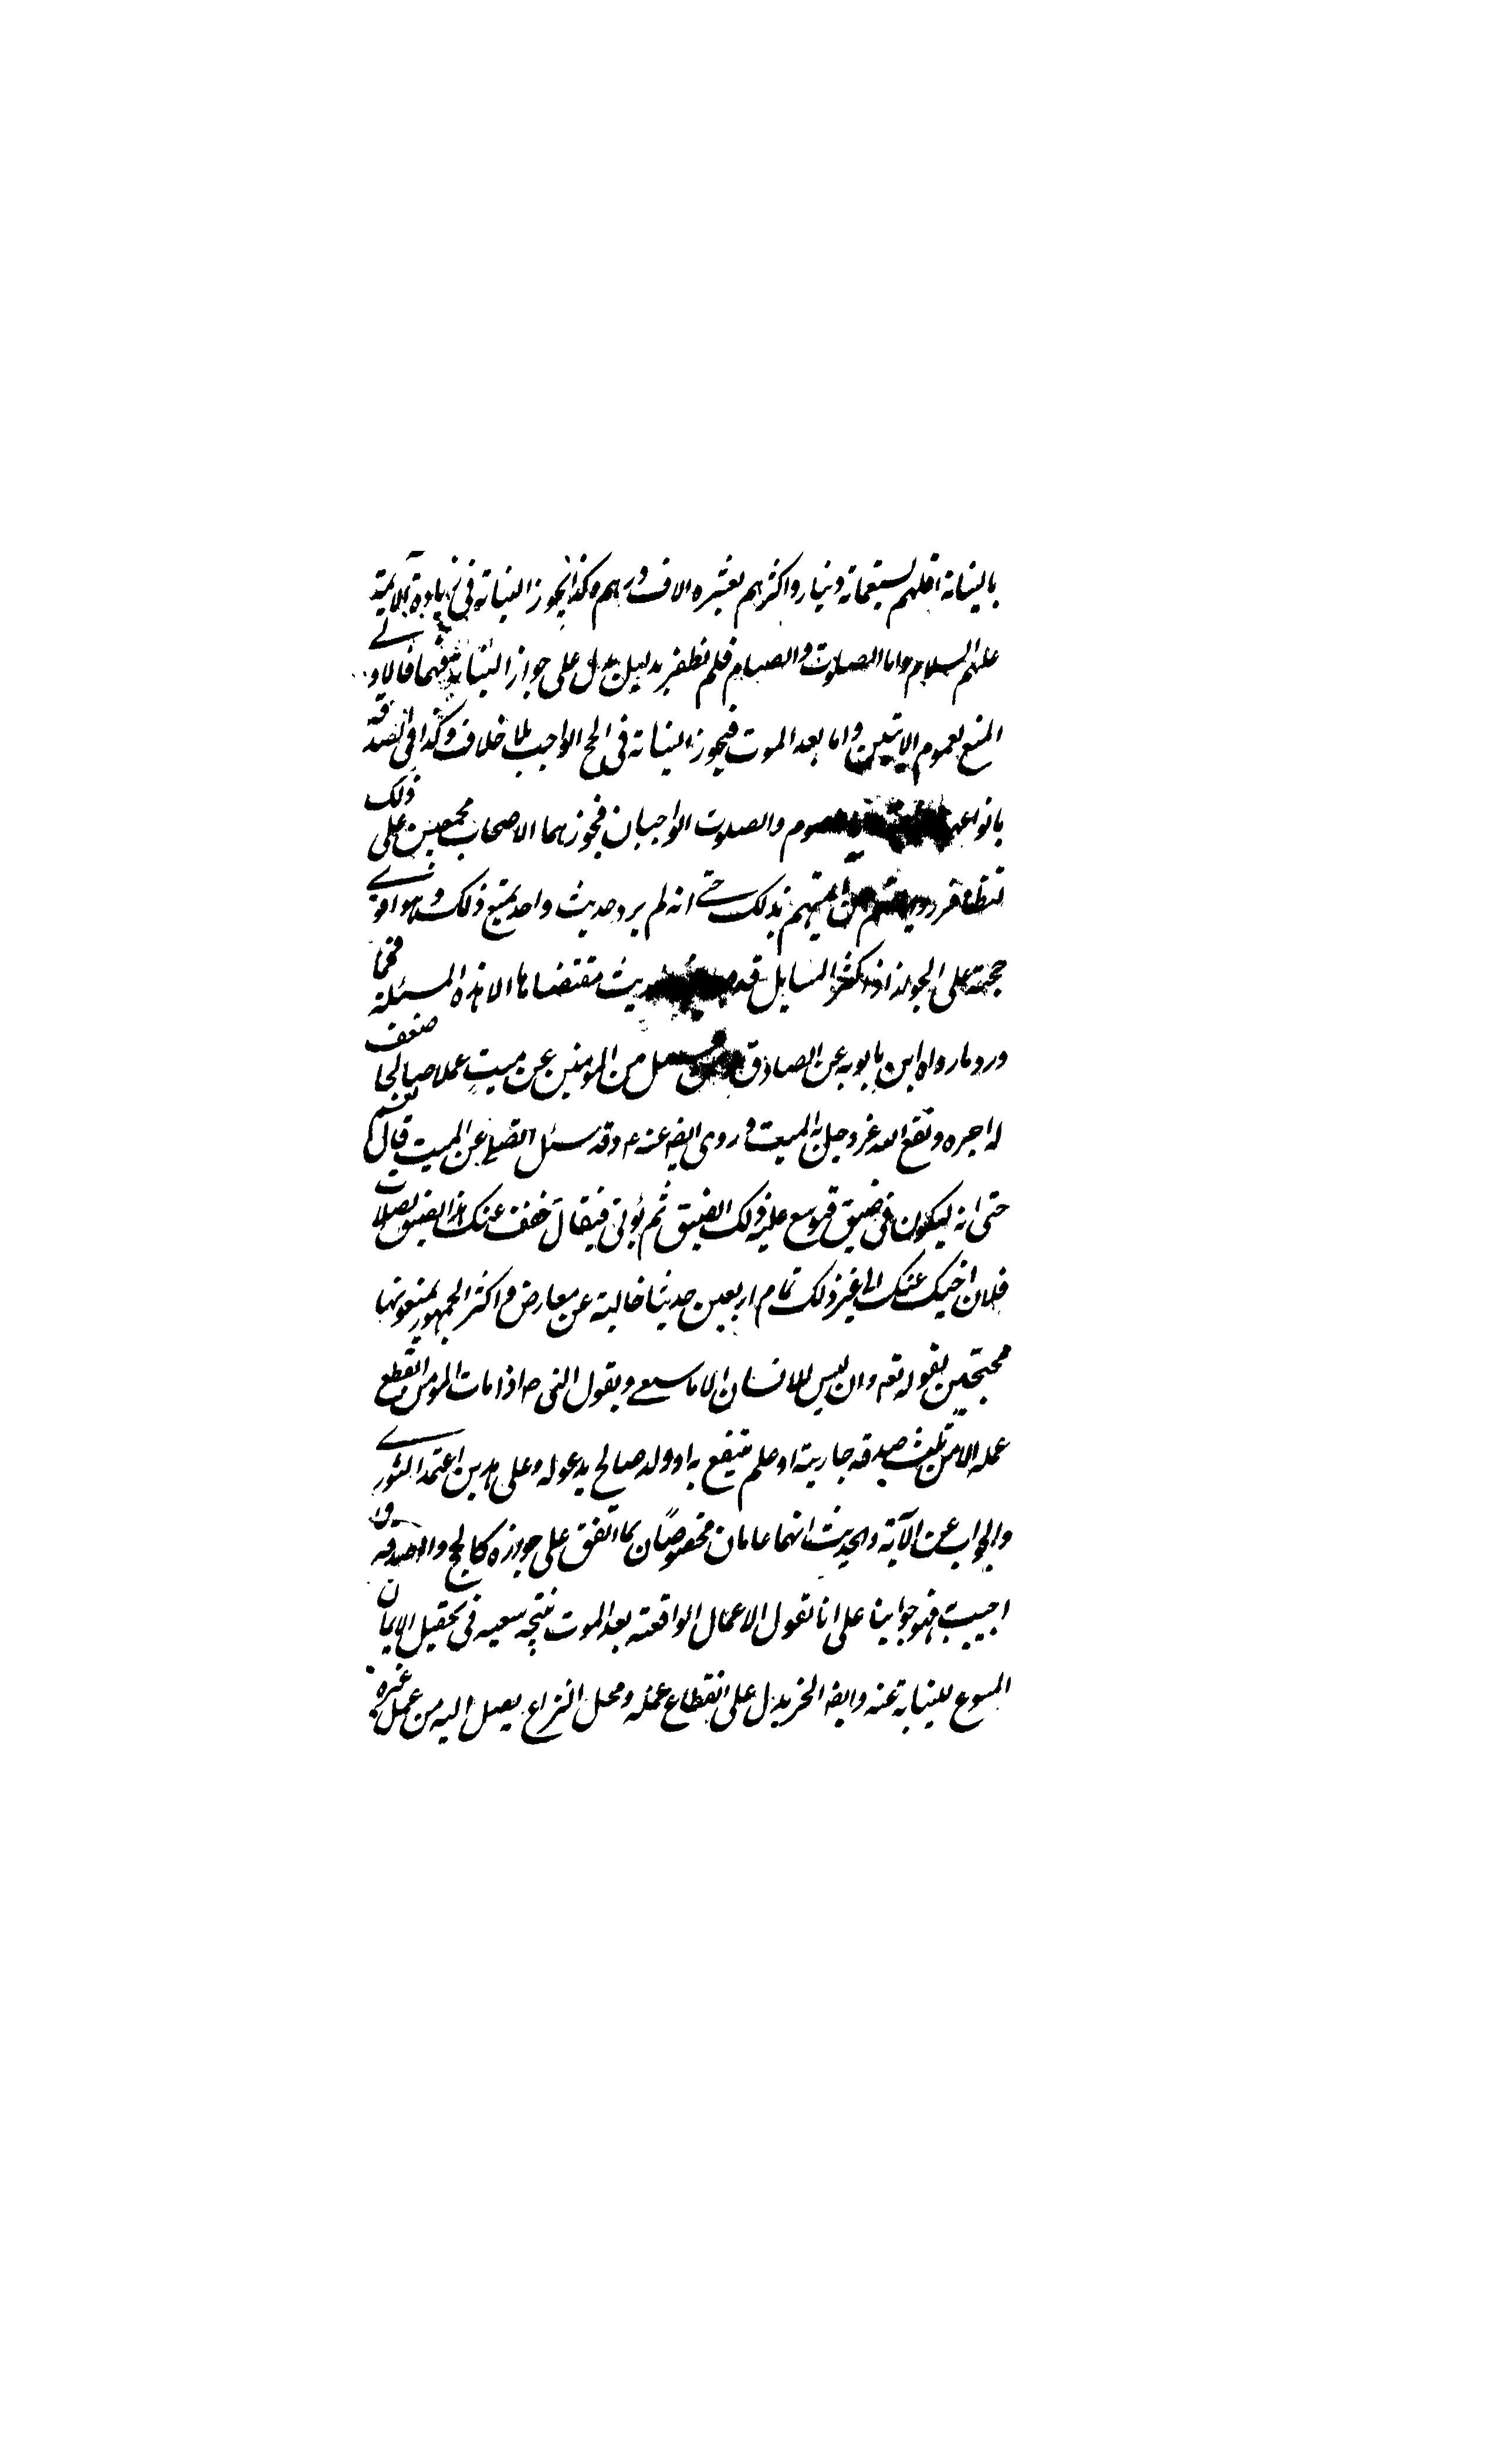 بالنيابة اقلهم لسبعماته دينار واكثرهم بعشره الاف درهم وكذا يجوز النيابة فى زيارة الائمة
عليهم السلام واما الصلوت والصيام فلم نظفر بدليل يدل على جواز النيابة فيهما فالاولى
المنع لعموم الايتين واما بعد الموت فيجوز النيابة فى الحج الواجب بلا خلاف وكذا فى الصدقة
بانواعها والصوم والصلوت الواجبان فجوزهما الاصحاب مجمعين على ذلك
لتظافر عن ائمتهم بذلك حتى انه لم يرد حديث واحد بمنع ذلك وهو اقوى
حجة على الجواز اذ اكثر المسايل قد مقتضاها الا هذه المسئلة فمما
ورد ما رواه ابن بابويه عن الصادق من عمل من المؤمنين عن ميت عملا صالحا ضعف
له اجره ونفع الله عز وجل به الميت وروى ايضا عنه ع وقد سئل ايصلى عن الميت قال نعم
حتى انه ليكون فى ضيق فيوسع عليه ذلك الضيق ثم يؤتى فيقال خفف عنك هذا الضيق بصلات
فلان اخيك عنك الى غير ذلك تمام اربعين حديثا خالية عن معارض واكثر الجمهور يمنعونها
محتجين بقوله تعه وان ليس للانسان الا ما سعى وبقول النبى ص اذا مات المؤمن انقطع
عمله الا من ثلث صدقه جارية او علم ينتفع به او ولد صالح يدعو له وعلى هذين اعتمد الثورى
والجواب عن الآية والحديث انهما عامان مخصوصان بما اتفق على جوازه كالحج والصدقه وان
اجيب فهو جوابنا على انا نقول الاعمال الواقعة بعد الموت نتيجه سعيه فى تحصيل الايمان
المسوغ للنيابة عنه وايضا الخبر يدل على انقطاع عمله ومحل النزاع يصل اليه من عمل غيره